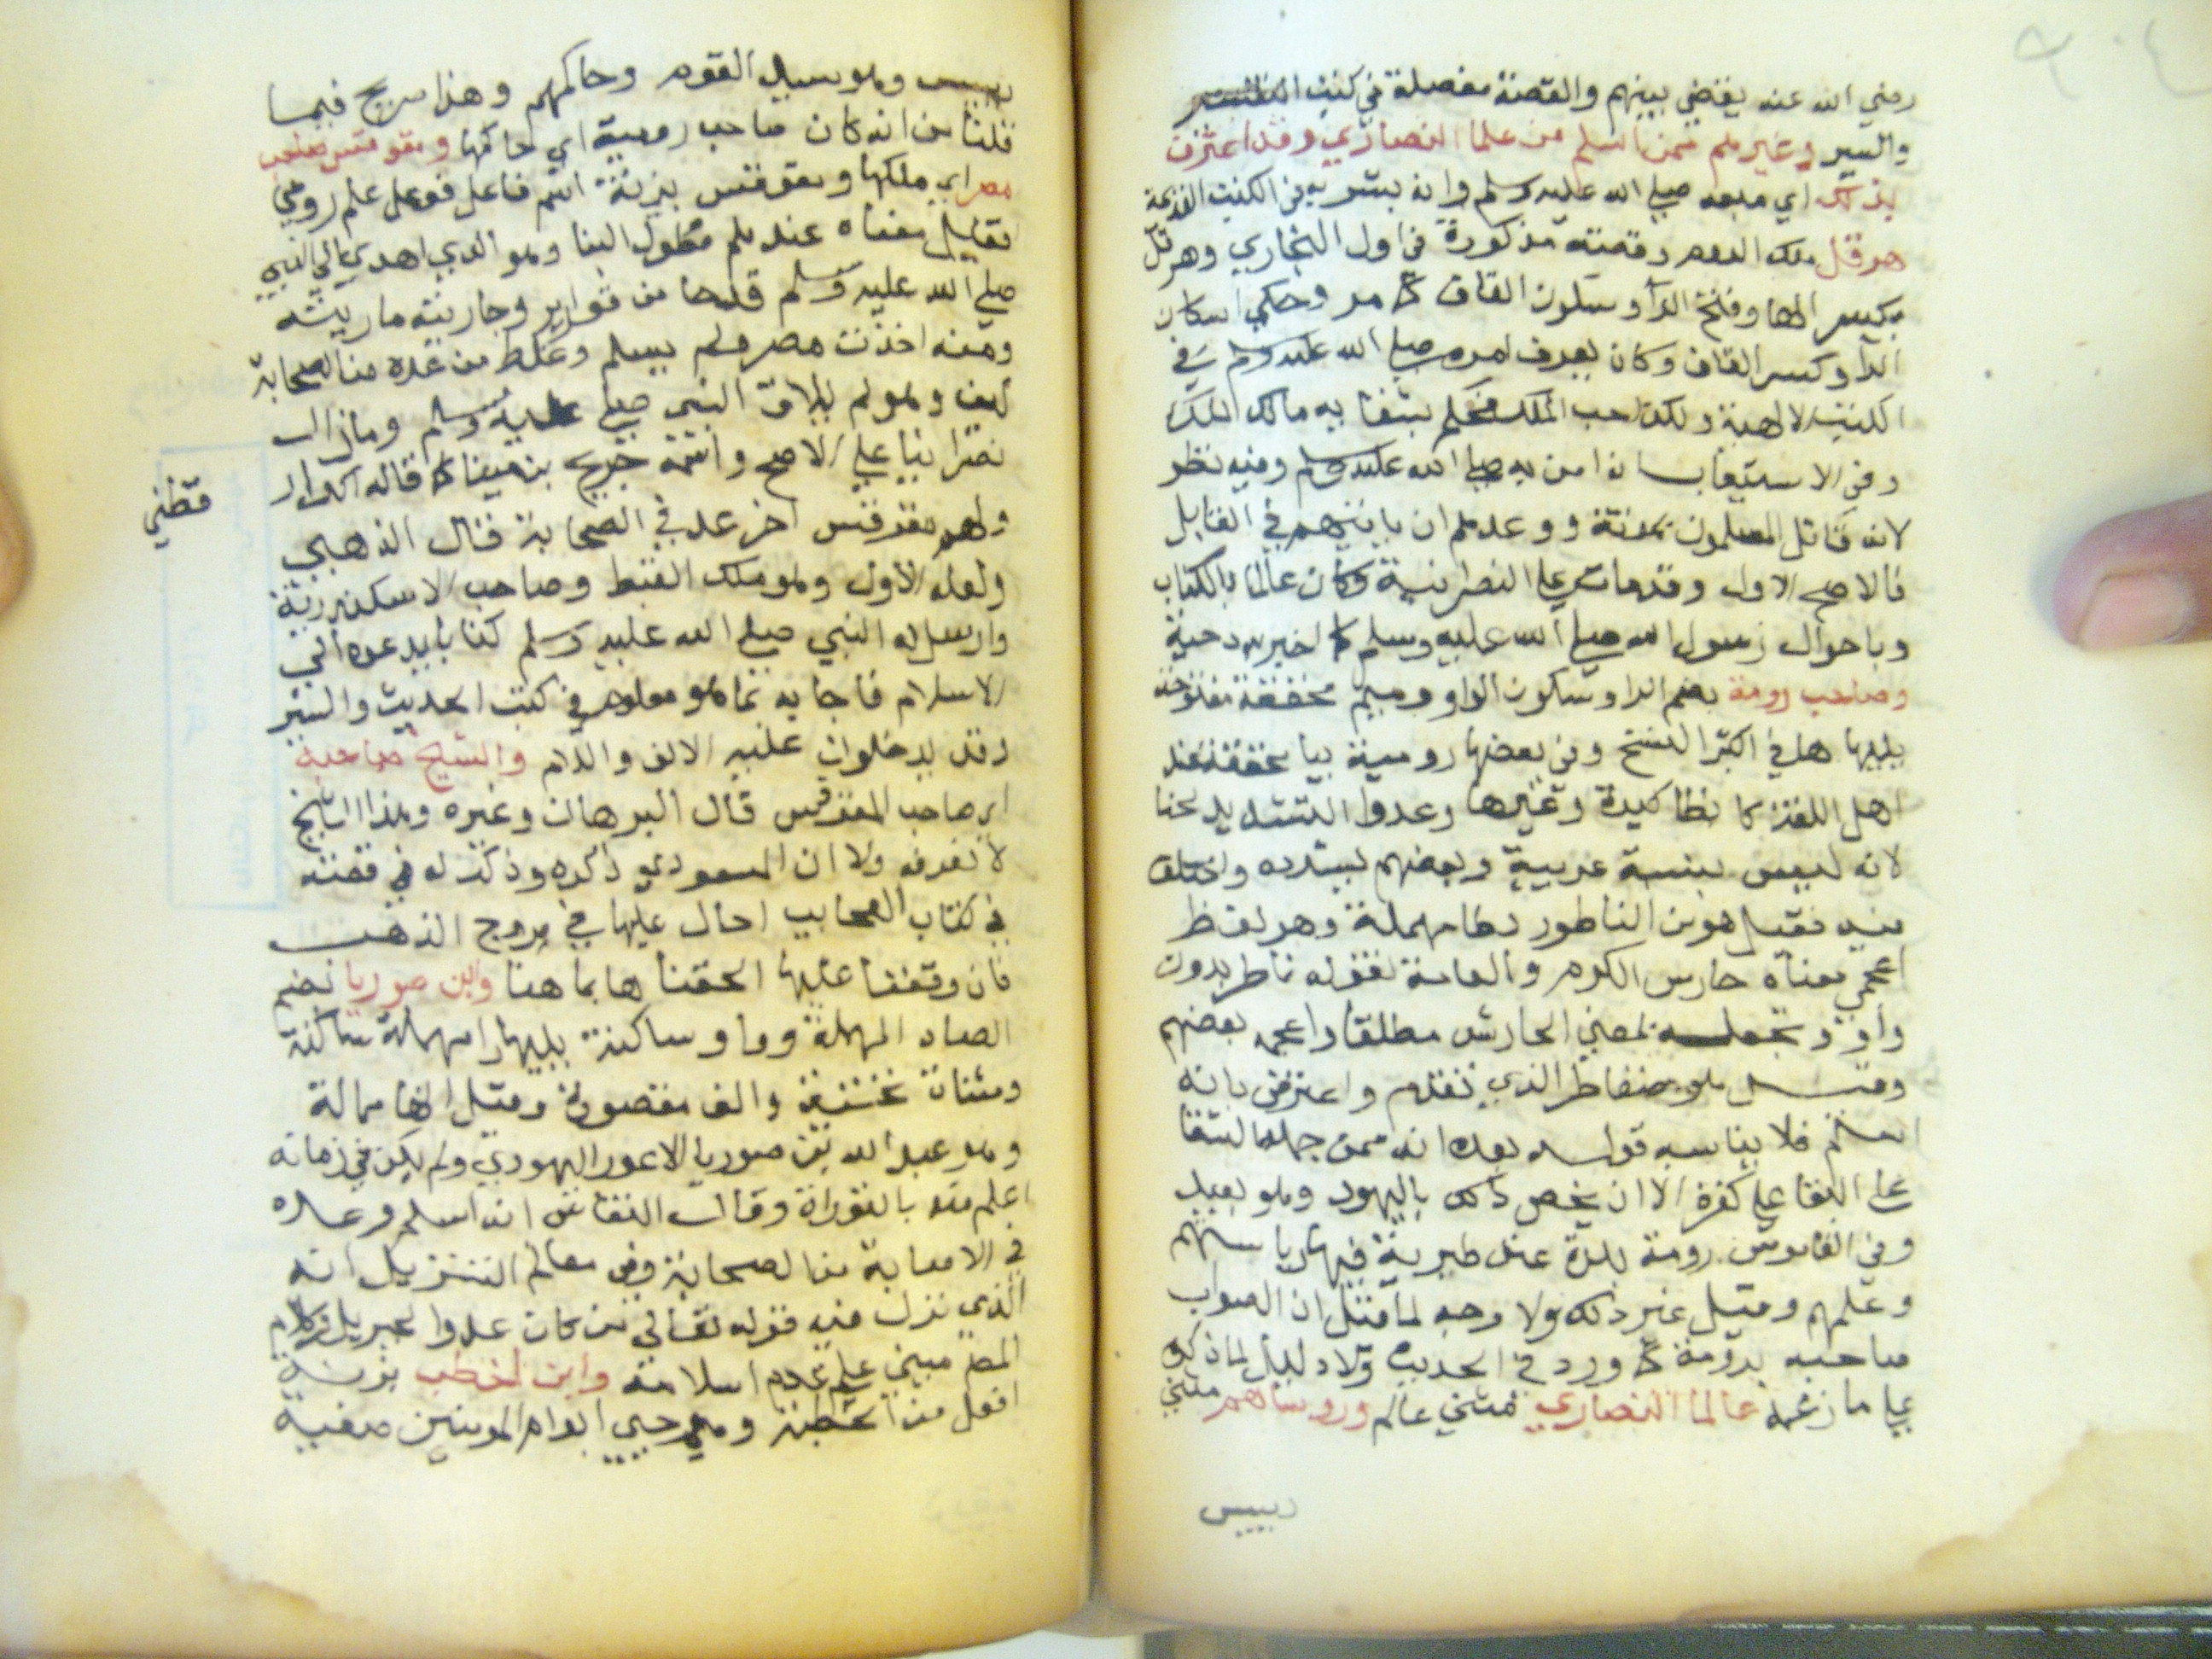 رضي الله عنه يقضي بينهم والقصة مفصلة في كتب التفسير
والسير وغيرهم ممن اسلم من علما النصاري وقد اعترف
بذلك اي مبعثه صلي الله عليه وسلم وانه بشر به في الكتب القديمة
هرقل ملك الروم وقصته مذكورة في اول البخاري وهرقل
بكسر الها وفتح الرا وسكون القاف كما مر وحكي اسكان
الرا وكسر القاف وكان يعرف امره صلي الله عليه وسلم في
الكتب الالهية ولكن احب الملك فحكم بشقايه مالك الملك
وفي الاستيعاب انه امن به صلي الله عليه وسلم وفيه نظر
لانه قاتل المسلمون بموتة ووعدهم ان ياتيهم في القابل
فالاصح الاول وقد مات علي النصرانية وكان عالما بالكتاب
وباحوال رسول الله صلي الله عليه وسلم كما اخبر به دحية
وصاحب رومة بضم الرا وسكون الواو وميم مخففة مفتوحة
يليها ها في اكثر النسخ وفي بعضها رومية بيا مخففة عند
اهل اللغة كانطاكية وغيرها وعدوا التشديد لحنا
لانه ليس بنسبة عربية وبعضهم يشدده واختلف
فيه فقيل هو ابن الناطور بطا مهملة وهو لفظ
اعجمي معناه حارس الكرم والعامة تقوله ناطر بدون
واو وتجعله بمعني الحارس مطلقا واعجمه بعضهم
وقيل هو ضغاطر الذي تقدم واعترض بانه
اسلم فلا يناسبه قوله بعده انه ممن حمله الشقا
علي البقا علي كفره الا ان يخص ذلك باليهود وهو بعيد
وفي القاموس رومة بلدة عند طبرية فيها رياستهم
وعلمهم وقيل غير ذلك ولا وجه لما قيل ان الصواب
صاحبه برومة كما ورد في الحديث ولا دليل لما ذكره
علي ما زعمه عالما النصاري مثني عالم وروساهم مثني
رييس
رييس وهو سيد القوم وحاكمهم وهذا صريح فيما
قلنا من انه كان صاحب رومية اي حاكمها ومقوقس صاحب
مصر اي ملكها ومقوقس بزنة اسم فاعل فوعل علم رومي
نقل معناه عندهم مطول البنا وهو الذي اهدي الي النبي
صلي الله عليه وسلم قدحا من قوارير وجاريته مارية
ومنه اخذت مصر ولم يسلم وغلط من عده من الصحابة
كيف وهو لم يلاق النبي صلي الله عليه وسلم ومازال
نصرانيا علي الاصح واسمه جريج بن مينا كما قاله الدار
قطني
ولهم مقوقس اخر عد في الصحابة قال الذهبي
ولعله الاول وهو ملك القبط وصاحب الاسكندرية
وارسل له النبي صلي الله عليه وسلم كتابا يدعوه الي
الاسلام فاجابه بما هو معلوم في كتب الحديث والسير
وقد يدخلون عليه الالف واللام والشيخ صاحبه
اي صاحب المقوقس قال البرهان وغيره وهذا الشيخ
لا نعرفه ولا ان المسعودي ذكره وذكر له في قصته
في كتاب العجايب احال عليها في مروج الذهب
فان وقفنا عليها الحقناها بما هنا وابن صوريا بضم
الصاد المهملة وواو ساكنة يليها را مهملة ساكنة
ومثناة تحتية والف مقصورة وقيل انها ممالة
وهو عبد الله بن صوريا الاعور اليهودي ولم يكن في زمانه
اعلم منه بالتوراة وقال النقاش انه اسلم وعده
في الاصابة من الصحابة وفي معالم التنزيل انه
الذي نزل فيه قوله تعالي من كان عدوا لجبريل وكلام
المص مبني علي عدم اسلامه وابن اخطب بزنة
افعل من الخطبة وهو حيي ابو ام المومنين صفية